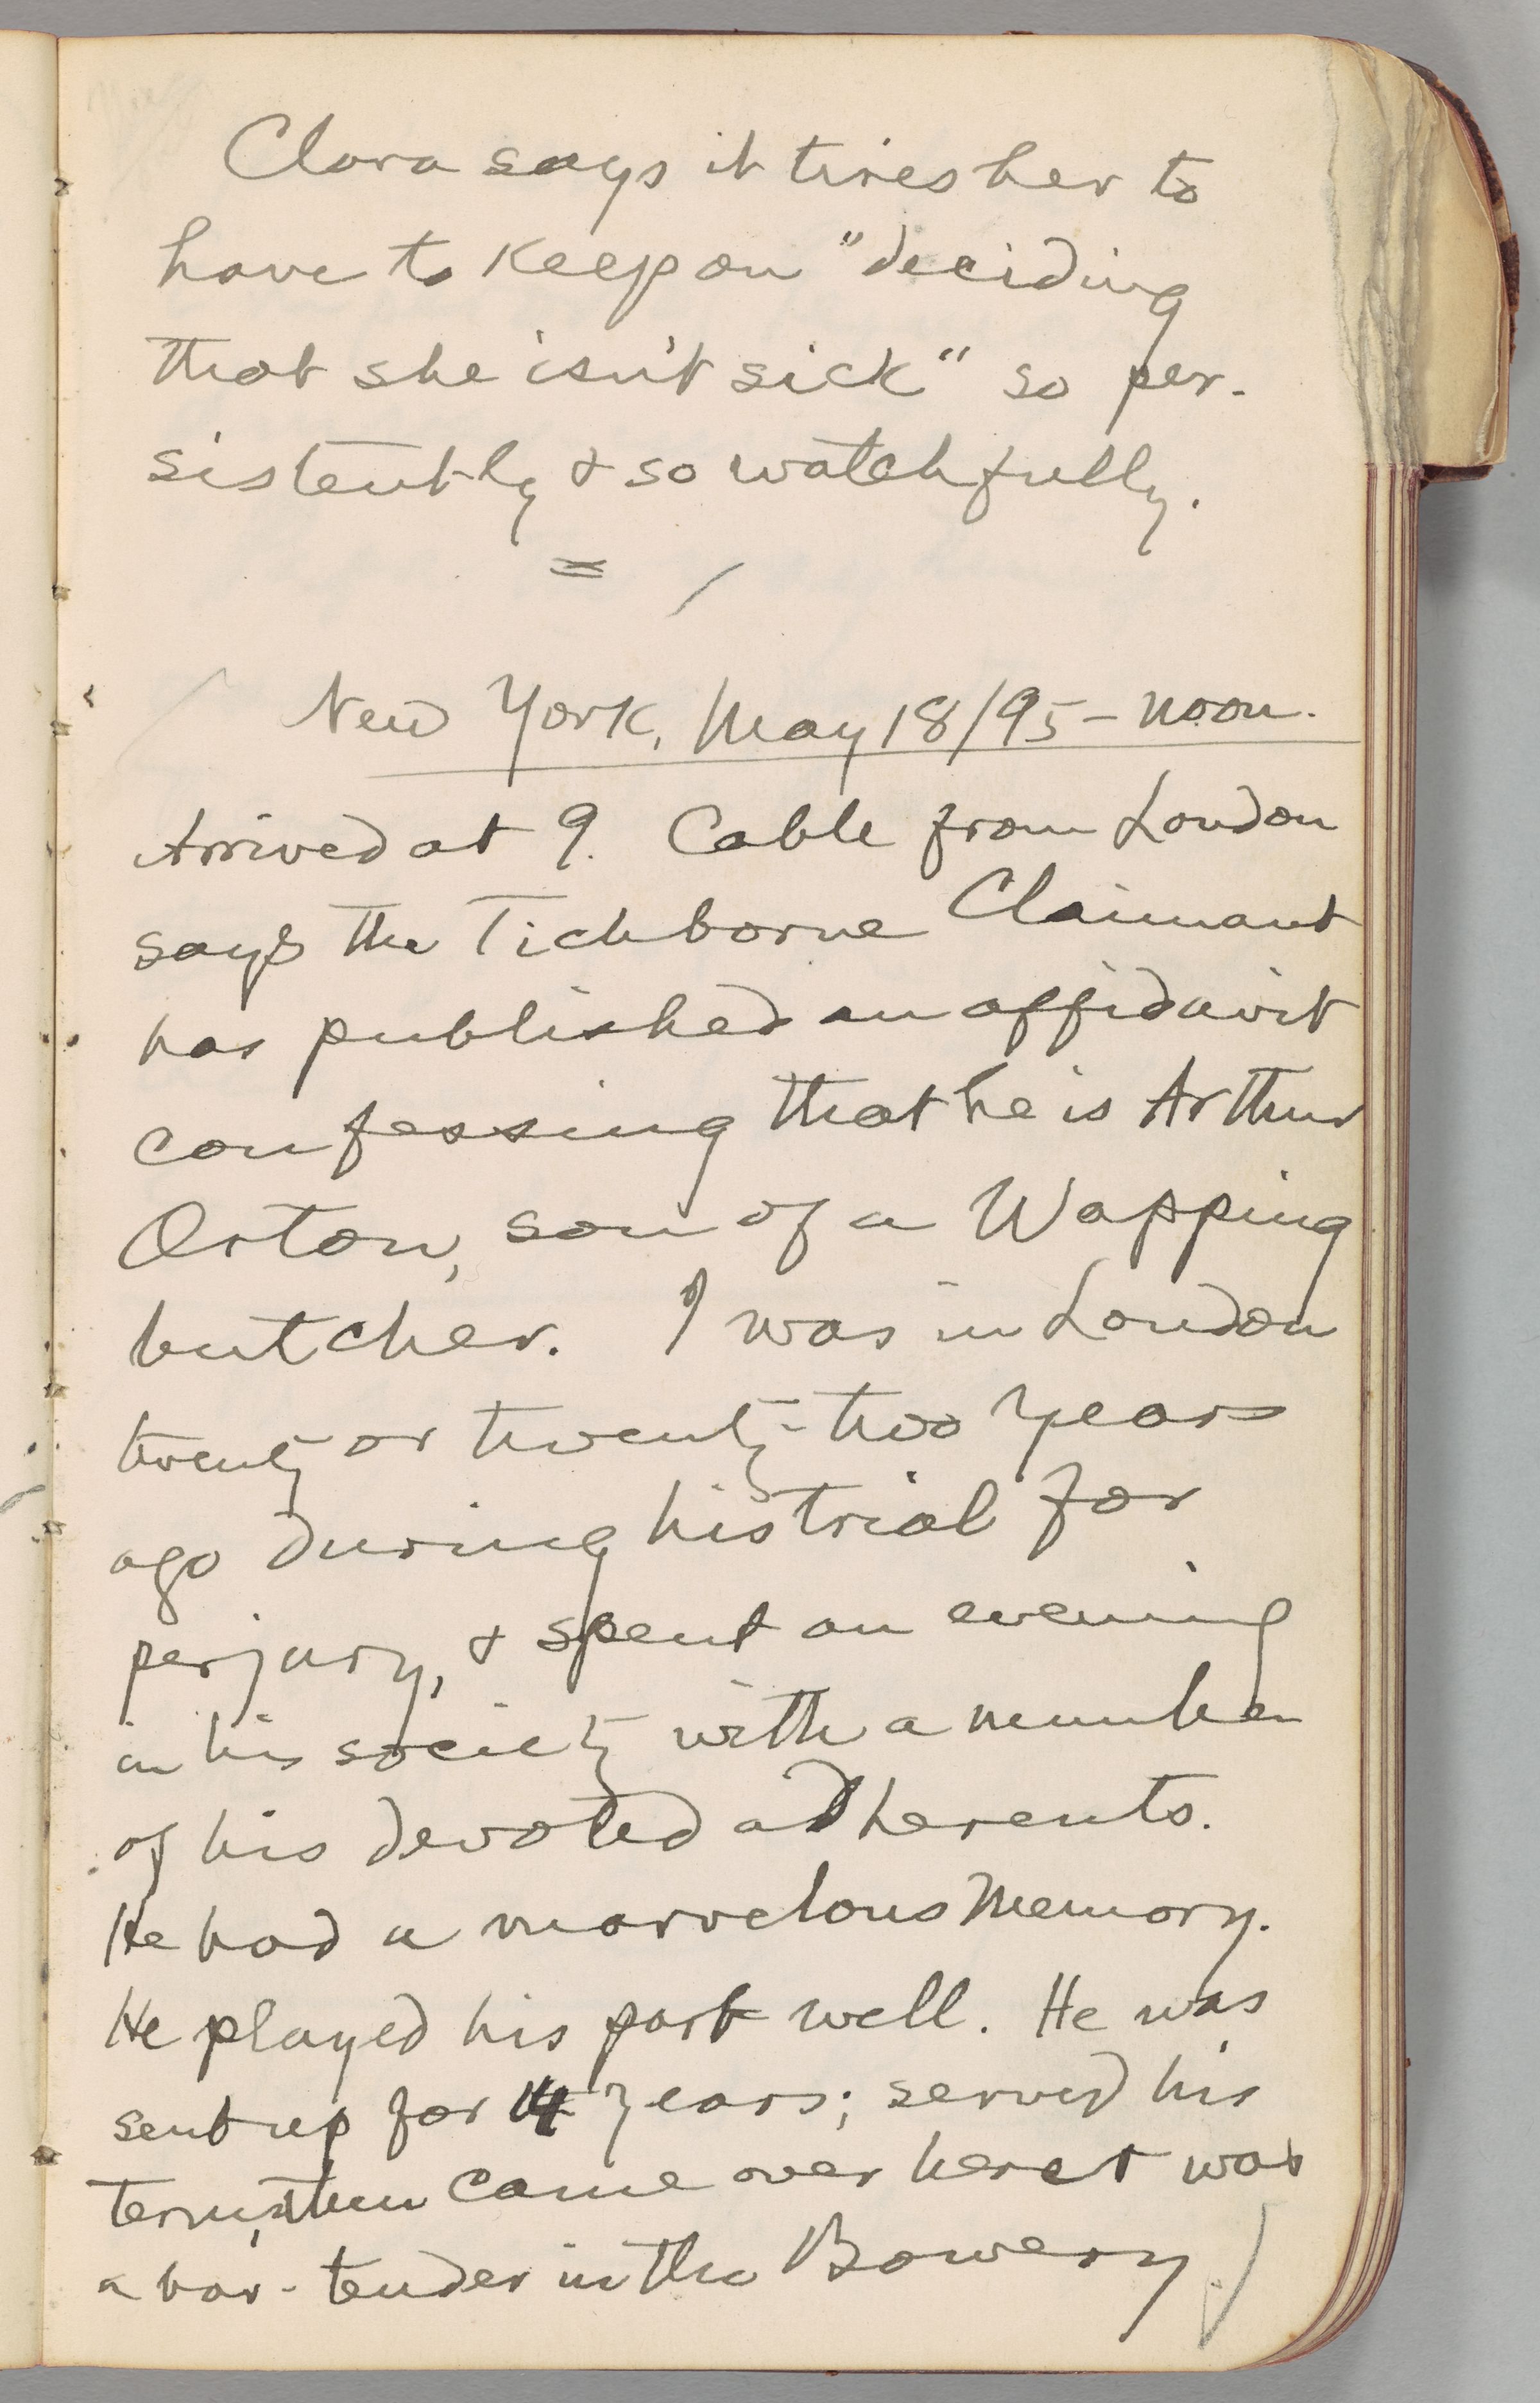 Clara says it tires her to
have to keep on "deciding
that she isn't sick" so per-
sistently & so watchfully.
=
New York, May 18/95 – noon.
Arrived at 9. Cable from London
says the Tichborne Claimant
has published an affidavit
confessing that he is Arthur
Orton, son of a Wapping
butcher. I was in London
twenty or twenty-two years
ago during his trial for
perjury, & spent an evening
in his society with a number
of his devoted adherents.
He had a marvelous memory.
He played his part well. He was
sent up for 14 years; served his
term, then came over here & was
a bar-tender in the Bowery